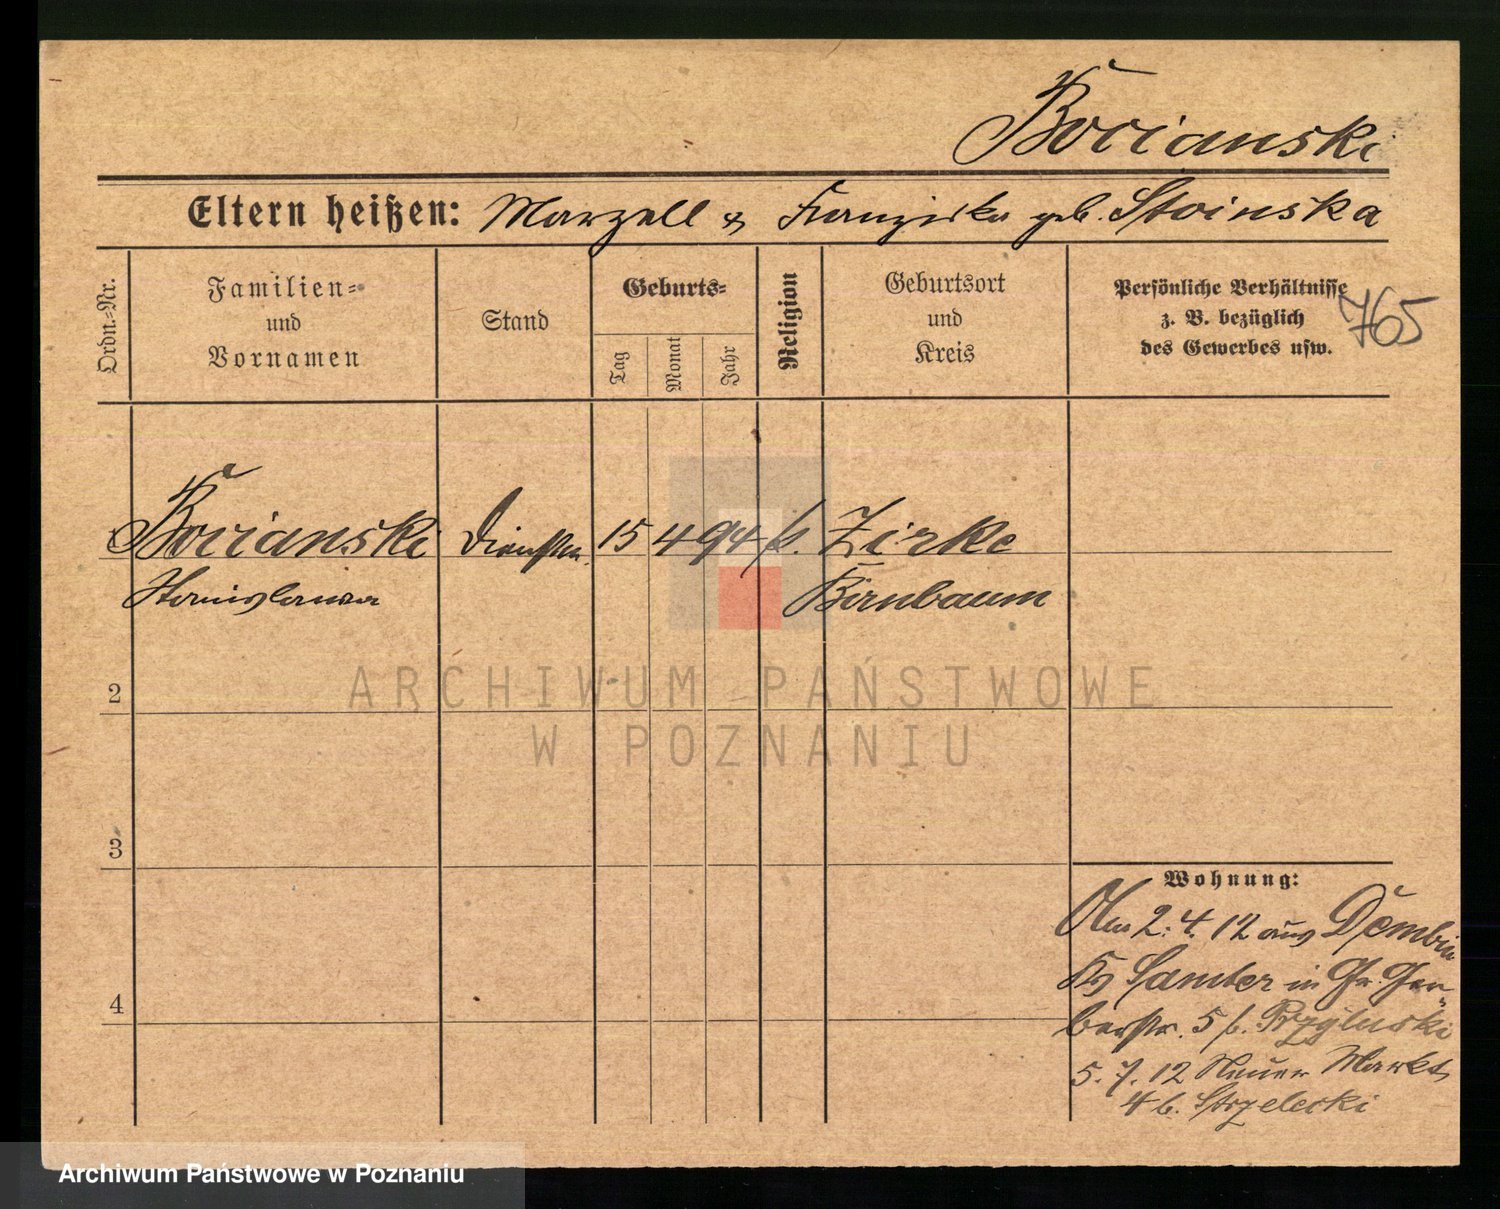 Bocianski
Eltern heißen: Marzell & Franziska geb. Stoinska
Ordn.-Nr.
Familien-
und
Vornamen
Stand
Geburts-
Tag
Monat
Jahr
Religion
Geburtsort
und
Kreis
Persönliche Verhältnisse
z. B. bezüglich
des Gewerbes usw.
765
Bocianski
15 4 94
Zirke
Stanislawa
Birnbaum
2
3
4
Wohnung:
Am 2.4.12 aus Dembin
Ks Samter in Gr. Ger-
berstr. 5 b.
5.7.12 Neuer Markt
4 b. Strzelecki
ARCHIWUM PAŃSTWOWE
W POZNANIU
Archiwum Państwowe w Poznaniu